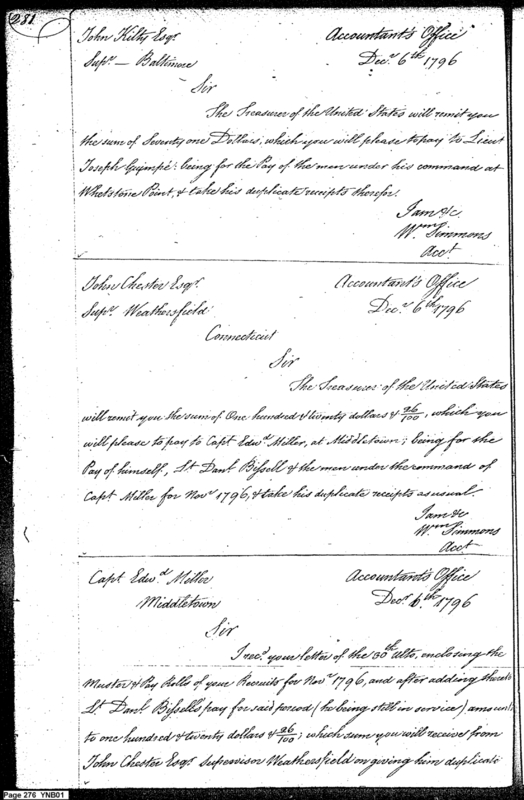 281.
John Kilty Esqr. Accountant's Office
Supr. — Baltimore Decr. 6th 1796
Sir
The Treasurer of the United States will remit you
the sum of Seventy one Dollars, which you will please to pay to Lieut
Joseph Guimpé: being for the Pay of the men under his command at
Whetstone Point, & take his duplicate receipts therefor.
I am &c.
Wm. Simmons
Acct.
John Chester Esqr. Accountant's Office
Supr. Weathersfield Decr. 6th 1796
Connecticut
Sir
The Treasurer of the United States
will remit you the sum of One hundred & twenty dollars & 26/100, which you
will please to pay to Capt Edwd. Miller, at Middletown; being for the
Pay of himself, Lt. Danl. Bissell & the men under the command of
Capt Miller for Novr. 1796, & take his duplicate receipts as usual.
I am &c
Wm. Simmons
Acct.
Capt Edwd. Miller Accountant's Office
Middletown Decr. 6th 1796
Sir
I recd. your letter of the 30th Ulto, enclosing the
Muster & Pay Rolls of your Recruits for Novr. 1796, and after adding thereto
Lt. Danl. Bissell's pay for said period (he being still in service) amounts
to one hundred & twenty dollars & 26/100; which sum you will receive from
John Chester Esqr. Supervisor Weathersfield on giving him duplicate
Page 276 YNB01